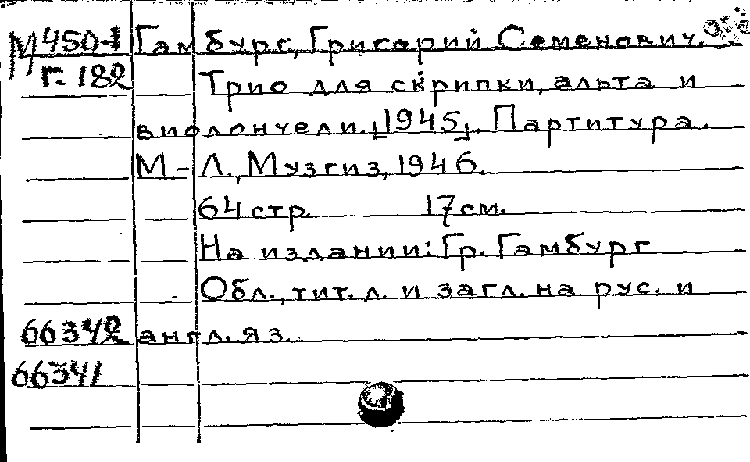 М 450-1 Гамбург, Григорий Семенович.
Г-182 Трио для скрипки, альта и
виолончели. [1945]. Партитура.
М-Л., Музгиз, 1946.
64 стр. 17 см.
На издании: Гр. Гамбург
Обл., тит. л. и загл. на рус. и
66342 англ. яз.
66341